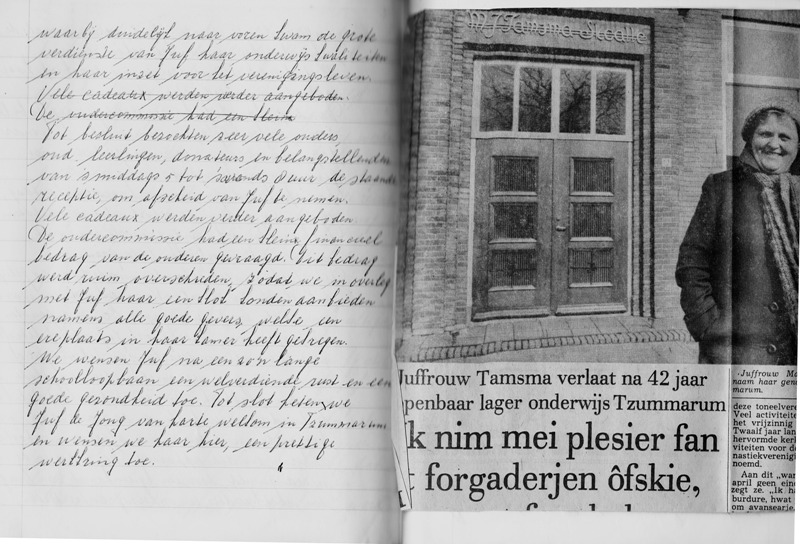 waarbij duidelijk naar voren kwam de grote
verdienste van Juf haar onderwijs kwaliteiten
en haar inzet voor het verenigingsleven.
Vele cadeaux werden verder aangeboden.
De oudercommissie had een klein
Tot besluit bezochten zeer vele ouders,
oud-leerlingen, donateurs en belangstellenden
van smiddags 5 tot 's avonds uur de staande
receptie, om afscheid van Juf te nemen.
Vele cadeaux werden verder aangeboden.
De oudercommissie had een klein financieel
bedrag van de ouderen gevraagd. Dit bedrag
werd ruim overschreden, zodat we in overleg
met Juf haar een klok konden aanbieden
namens alle goede gevers, welke een
ereplaats in haar kamer heeft gekregen.
We wensen Juf na een zo'n lange
schoolloopbaan een welverdiende rust en een
goede gezondheid toe. Tot slot heten we
Juf de Jong van harte welkom in Tzummarum
en wensen we haar hier, een prettige
werkkring toe.
M.J. Tamsma-Skoalle
Juffrouw Tamsma verlaat na 42 jaar
penbaar lager onderwijs Tzummarum
k nim mei plesier fan
t forgaderjen ôfskie,
Juffrouw Ma
naam haar gen
marum.
deze toneelvere
Veel activiteite
het vrijzinnig
Twaalf jaar lan
hervormde kerk
viteiten voor de
nastiekverenigi
noemd.
Aan dit „war
april geen eind
zegt ze. „Ik ha
burdure, hwat
om avansearje.